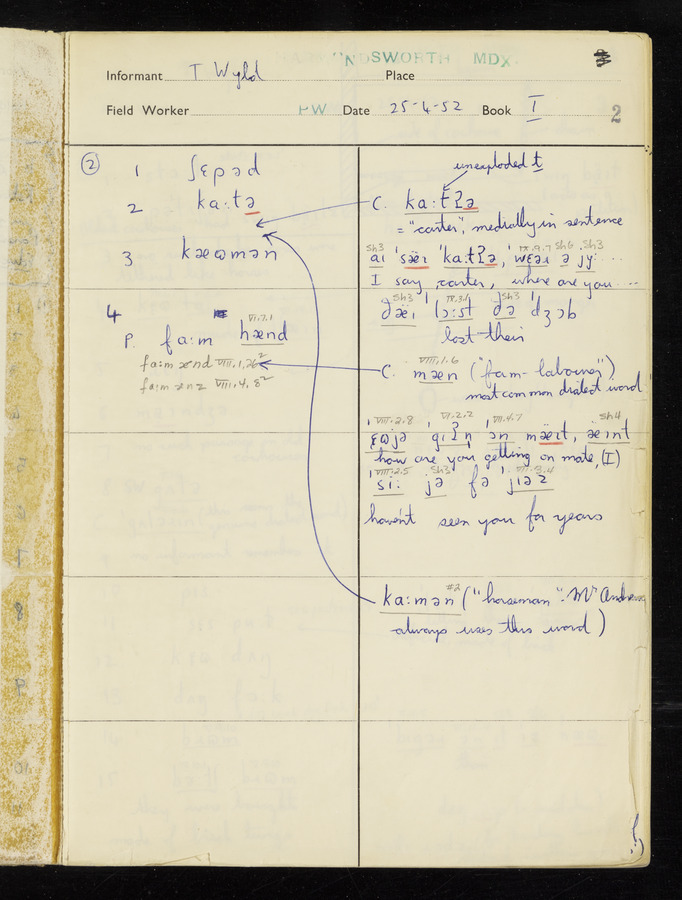 NDSWORTH MDX.
Informant T Wyld Place
Field Worker PW Date 25-4-52 Book I 2
② 1 ʃɛpəd
2 ka:tə
3 kæɷmən
4
VI.7.1
P. fa:m hænd
fa:m ænd VIII.1.26²
fa:m ænz VIII.4.8²
unexploded t
C. ka:tʔə
= "carter", medially in sentence
sh3 IX.9.7 sh6 sh3
aɪ 'sæɪ 'ka:tʔə, 'wɛəɪ ə jy: ...
I say, carter, where are you ...
sh3 IX.3.1 sh3
ðæɪ 'lɔ:st ðə 'dʒɔb
lost their
VIII.1.6
C. mæn ("farm-labourer")
most common dialect word
VIII.2.8 VI.2.2 VIII.4.7 sh4
'ɛɷjə 'gɪʔn 'ɔn mæɪt, æɪnt
how are you getting on mate, (I)
VIII.2.5 sh3 VII.3.4
'si: jə fə 'jɪəz
haven't seen you for years
#2
ka:mən ("horseman". Mr Andrews
always uses this word)